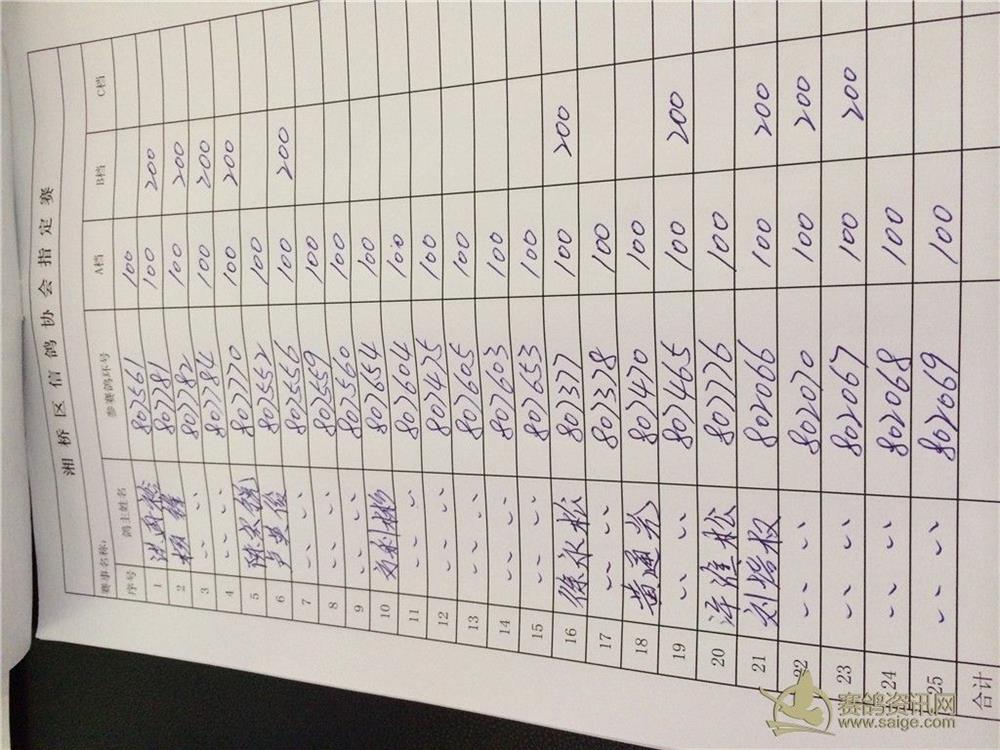 湘桥区信鸽协会指定赛
赛事名称:
序号 鸽主姓名 参赛鸽环号 A档 B档 C档
1 802561 100
2 807781 100 200
3 〃 807782 100 200
4 〃 807784 100 200
5 807770 100 200
6 英俊 802552 100
7 〃 802556 100 200
8 〃 802559 100
9 〃 802560 100
10 807654 100
11 〃 807604 100
12 〃 807475 100
13 〃 807605 100
14 〃 807603 100
15 〃 807653 100
16 徐永松 807377 100 200
17 〃 807378 100
18 黄通 807470 100
19 〃 807465 100 200
20 许维松 807776 100
21 刘楷权 802066 100 200
22 〃 802070 100 200
23 〃 802067 100 200
24 〃 802068 100
25 〃 802069 100
合计
赛鸽资讯网
www.saige.com